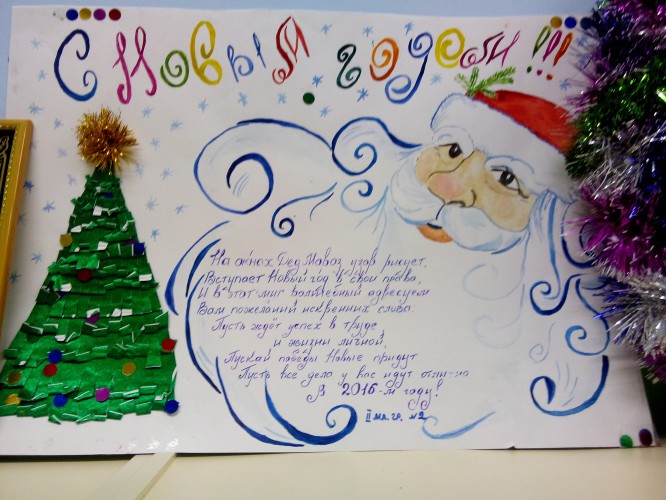 С Новым годом!!!
На окнах Дед Мороз узор рисует.
Вступает Новый год в свои права,
И в этот миг волшебный адресуем
Вам пожеланий искренних слова.
Пусть ждёт успех в труде
и жизни личной,
Пускай победы Новые придут
Пусть все дела у вас идут отлично
В 2016-м году!
II мл. гр. №2